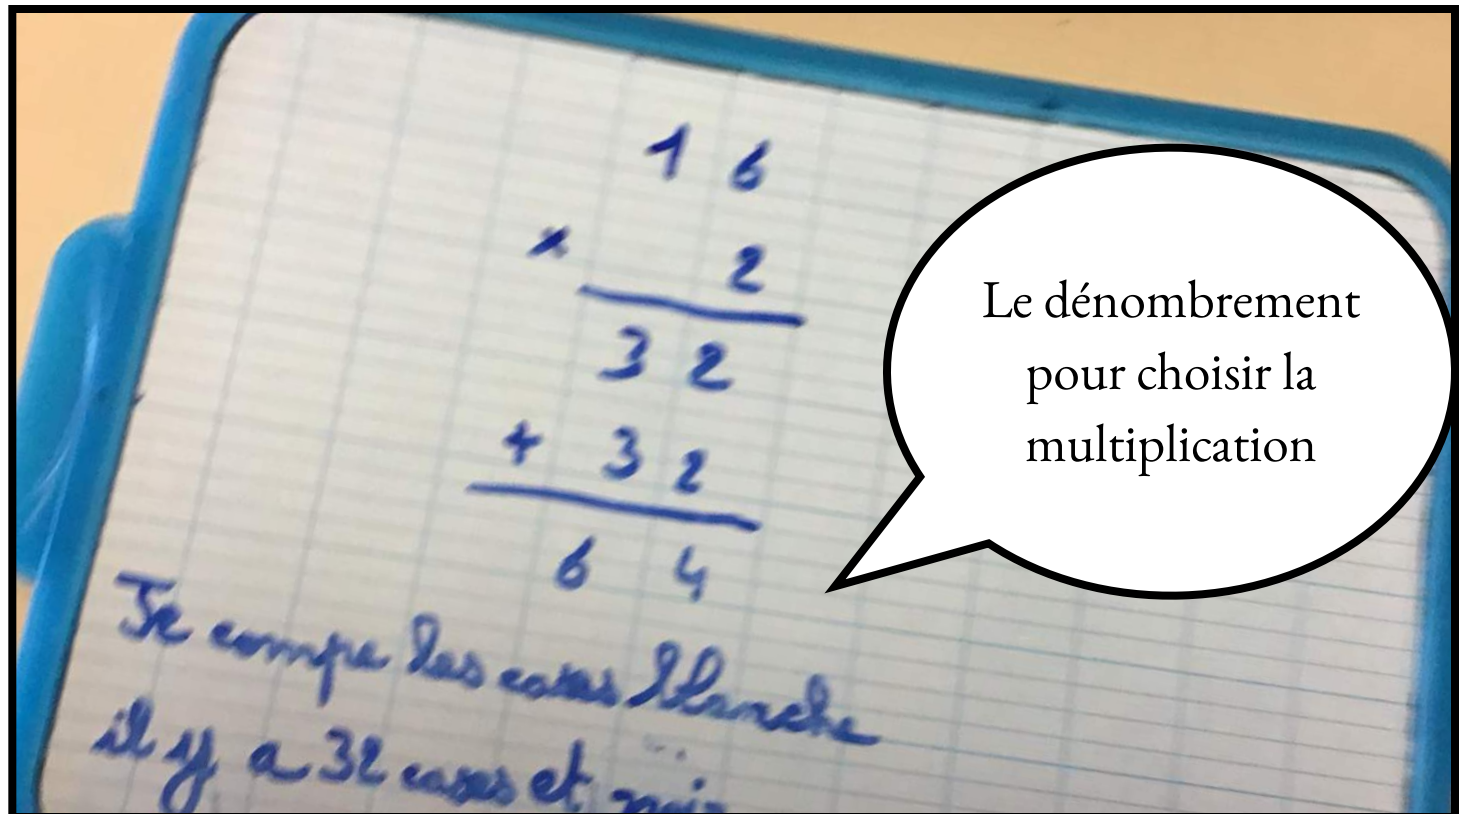 1 6
x 2
3 2
+ 3 2
6 4
Je compe les cases blanche
il y a 32 cases et
Le dénombrement
pour choisir la
multiplication